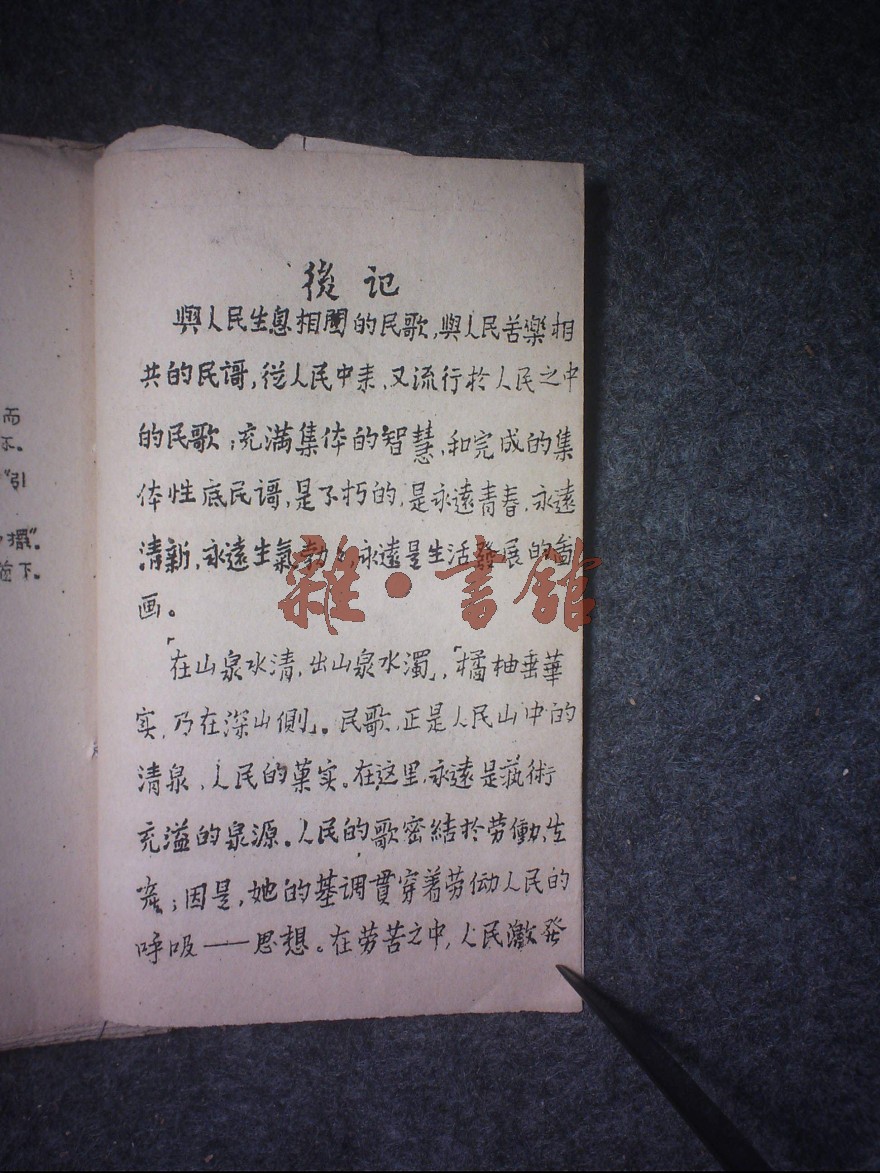 而
不。
"引
擺"。
下。
後记
與人民生息相関的民歌,與人民苦樂相
共的民謌,從人民中来,又流行於人民之中
的民歌;充满集体的智慧,和完成的集
体性底民謌,是不朽的,是永遠青春,永遠
清新,永遠生氣勃々,永遠是生活發展的畓
画。
「在山泉水清,出山泉水濁」,「橘柚垂華
实,乃在深山側」。民歌,正是人民山中的
清泉,人民的菓实。在这里,永遠是藝術
充溢的泉源。人民的歌密結於劳働,生
產;因是,她的基调貫穿着劳动人民的
呼吸——思想。在劳苦之中,人民激發
雜·書館